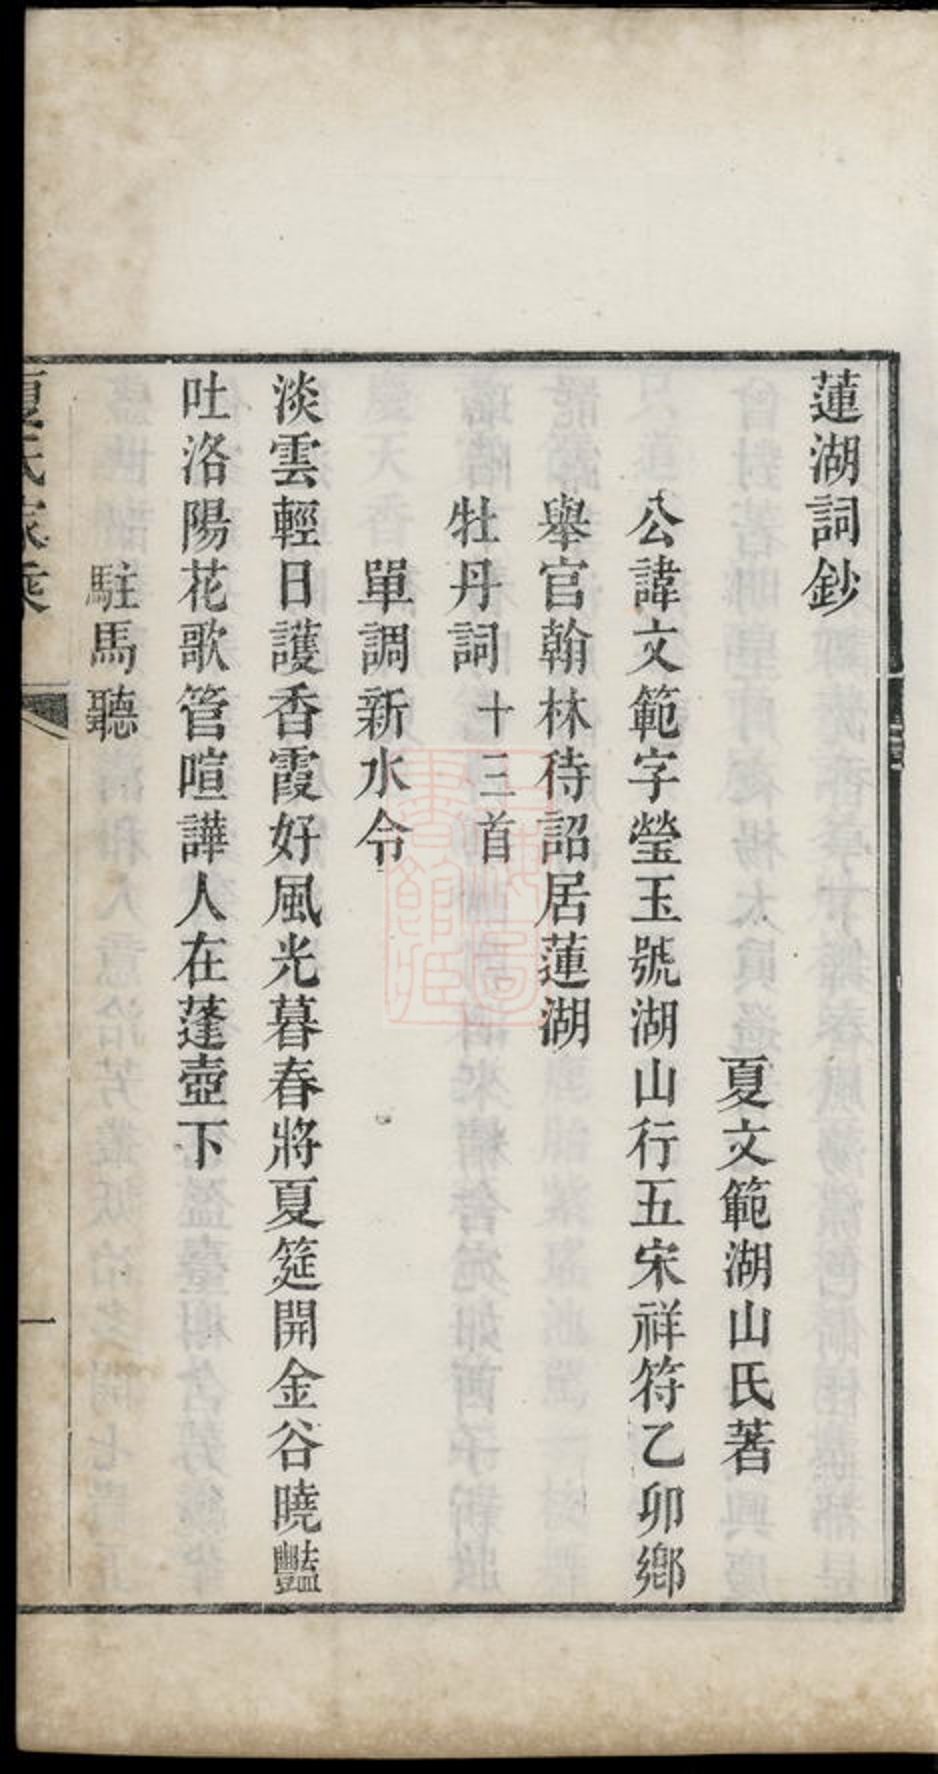 蓮湖詞鈔
夏文範湖山氏著
公諱文範字瑩玉號湖山行五宋祥符乙卯鄉
舉官翰林待詔居蓮湖
牡丹詞十三首
單調新水令
淡雲輕日護香霞好風光暮春將夏筵開金谷曉豔
吐洛陽花歌管喧譁人在蓬壺下
駐馬聽
夏氏家乘
一